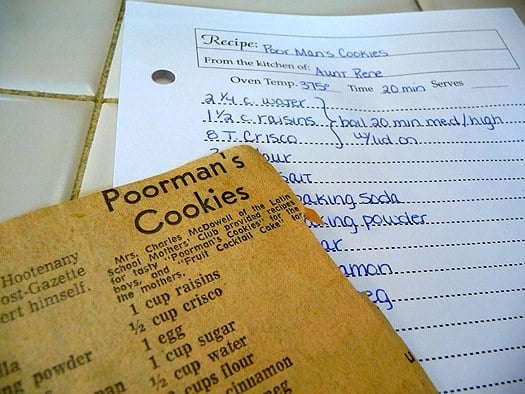 Recipe: Poor Man's Cookies
From the kitchen of: Aunt Rene
Oven Temp. 375° Time 20 min Serves
2 1/4 c. water
1 1/2 c. raisins
8 T. Crisco
boil 20 min med/high
w/lid on
our
baking soda
king powder
ar
amon
eg
Poorman's
Cookies
Mrs. Charles McDowell of the Latin
School Mothers' Club provided recipes
for tasty "Poorman's Cookies" for the
boys, and "Fruit Cocktail Cake" for
the mothers.
1 cup raisins
½ cup crisco
1 egg
1 cup sugar
½ cup water
cups flour
cinnamon
meg
Hootenany
ost-Gazette
ert himself.
lla
ng powder
an